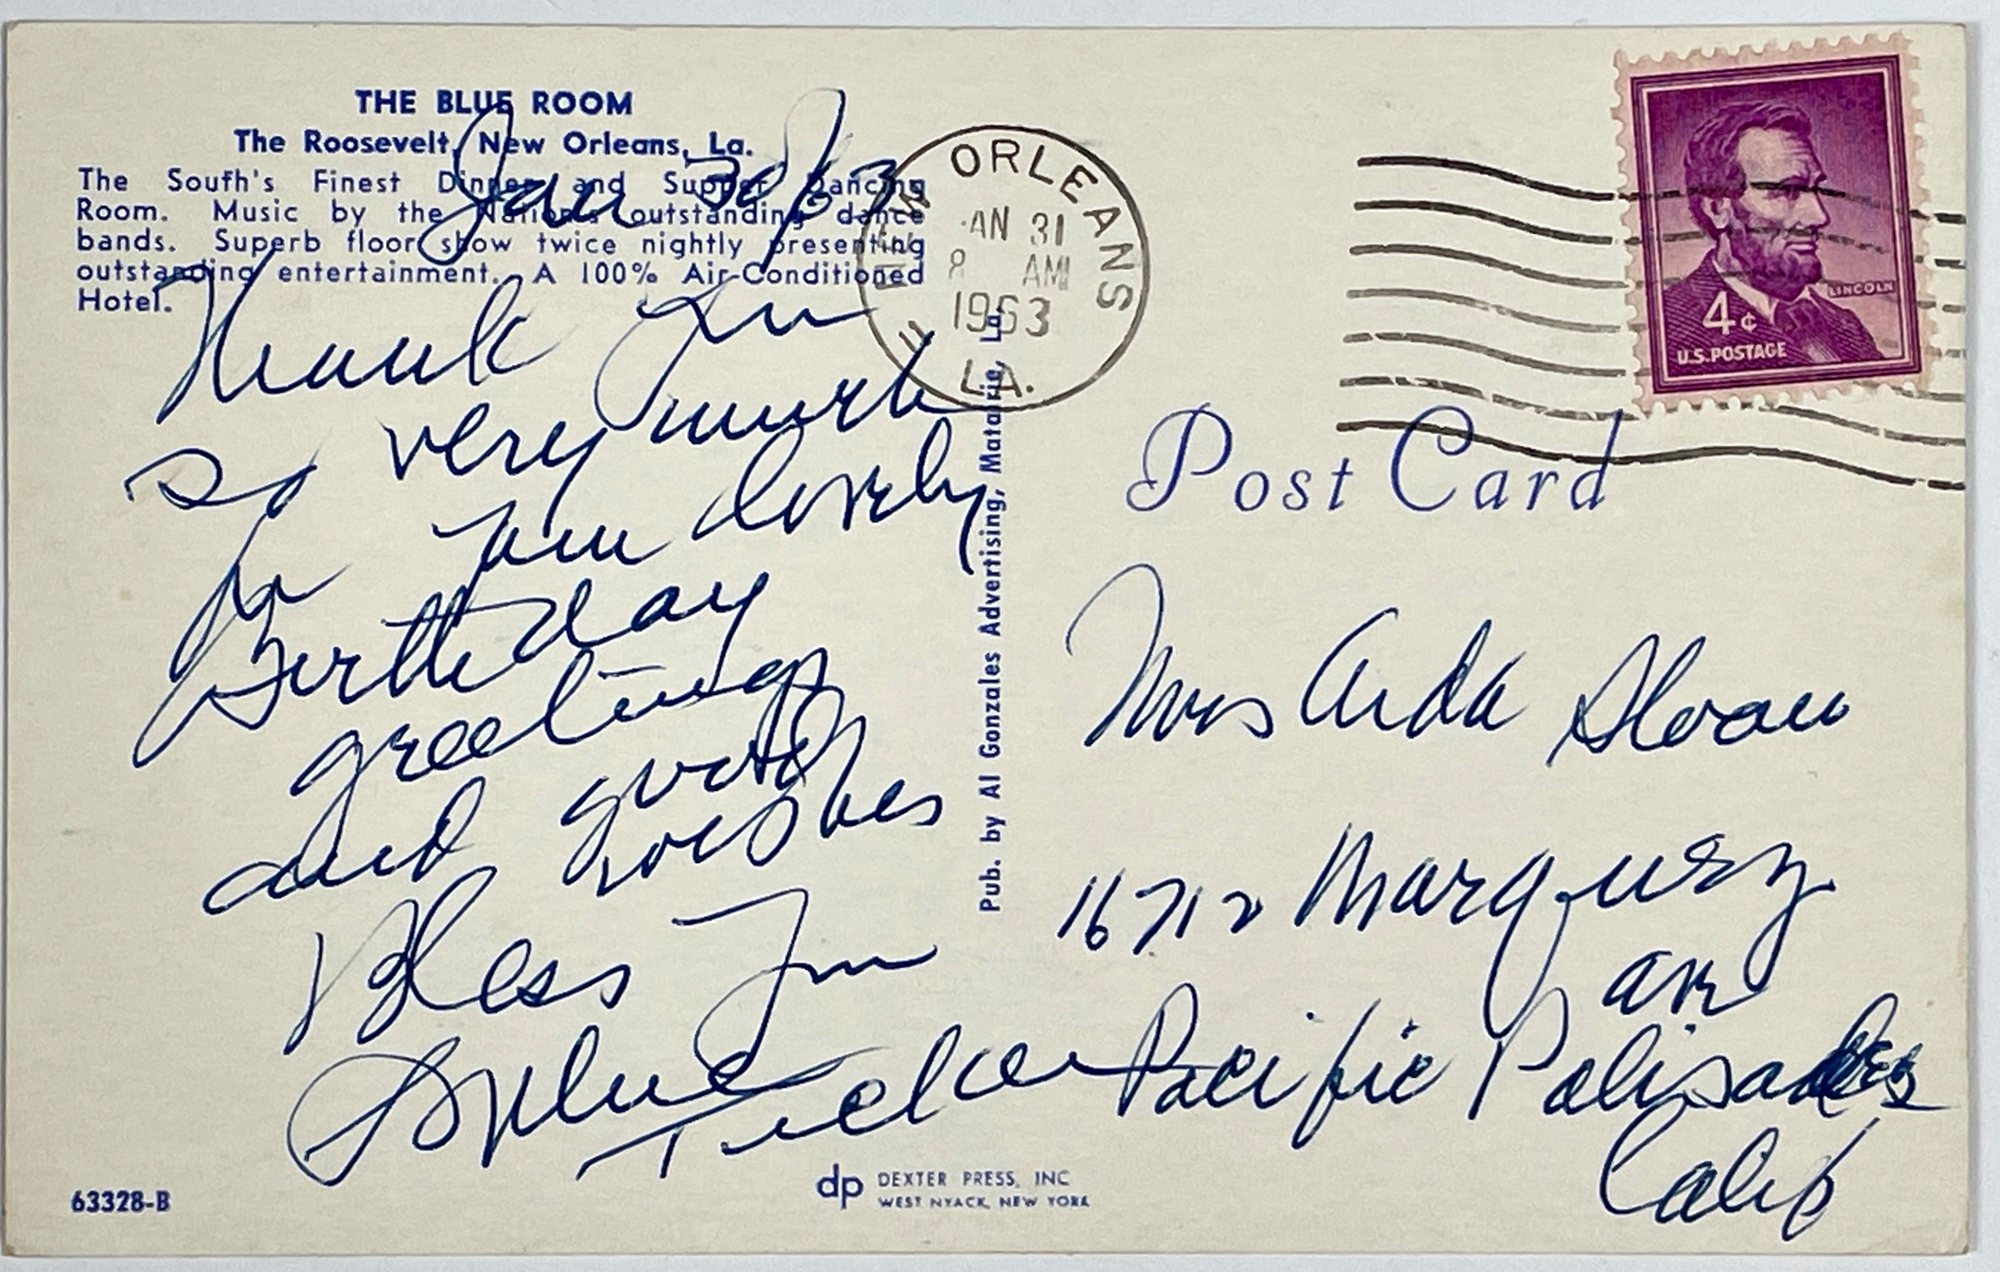 THE BLUE ROOM
The Roosevelt, New Orleans, La.
The South's Finest Dinner and Supper Dancing
Room. Music by the Nation's outstanding dance
bands. Superb floor show twice nightly presenting
outstanding entertainment. A 100% Air-Conditioned
Hotel.
Jan 30/63
Thank You
so very much
for your lovely
Birthday
greetings
and good
wishes
Bless You
Sophie
Tucker
63328-B
Pub. by Al Gonzales Advertising, Matairie, La.
dp DEXTER PRESS, INC
WEST NYACK, NEW YORK
NEW ORLEANS
JAN 31
8 AM
1963
LA.
LINCOLN
4¢
U.S. POSTAGE
Post Card
Mrs Aida Sloan
16712 Marquez
ave
Pacific Palisades
Calif